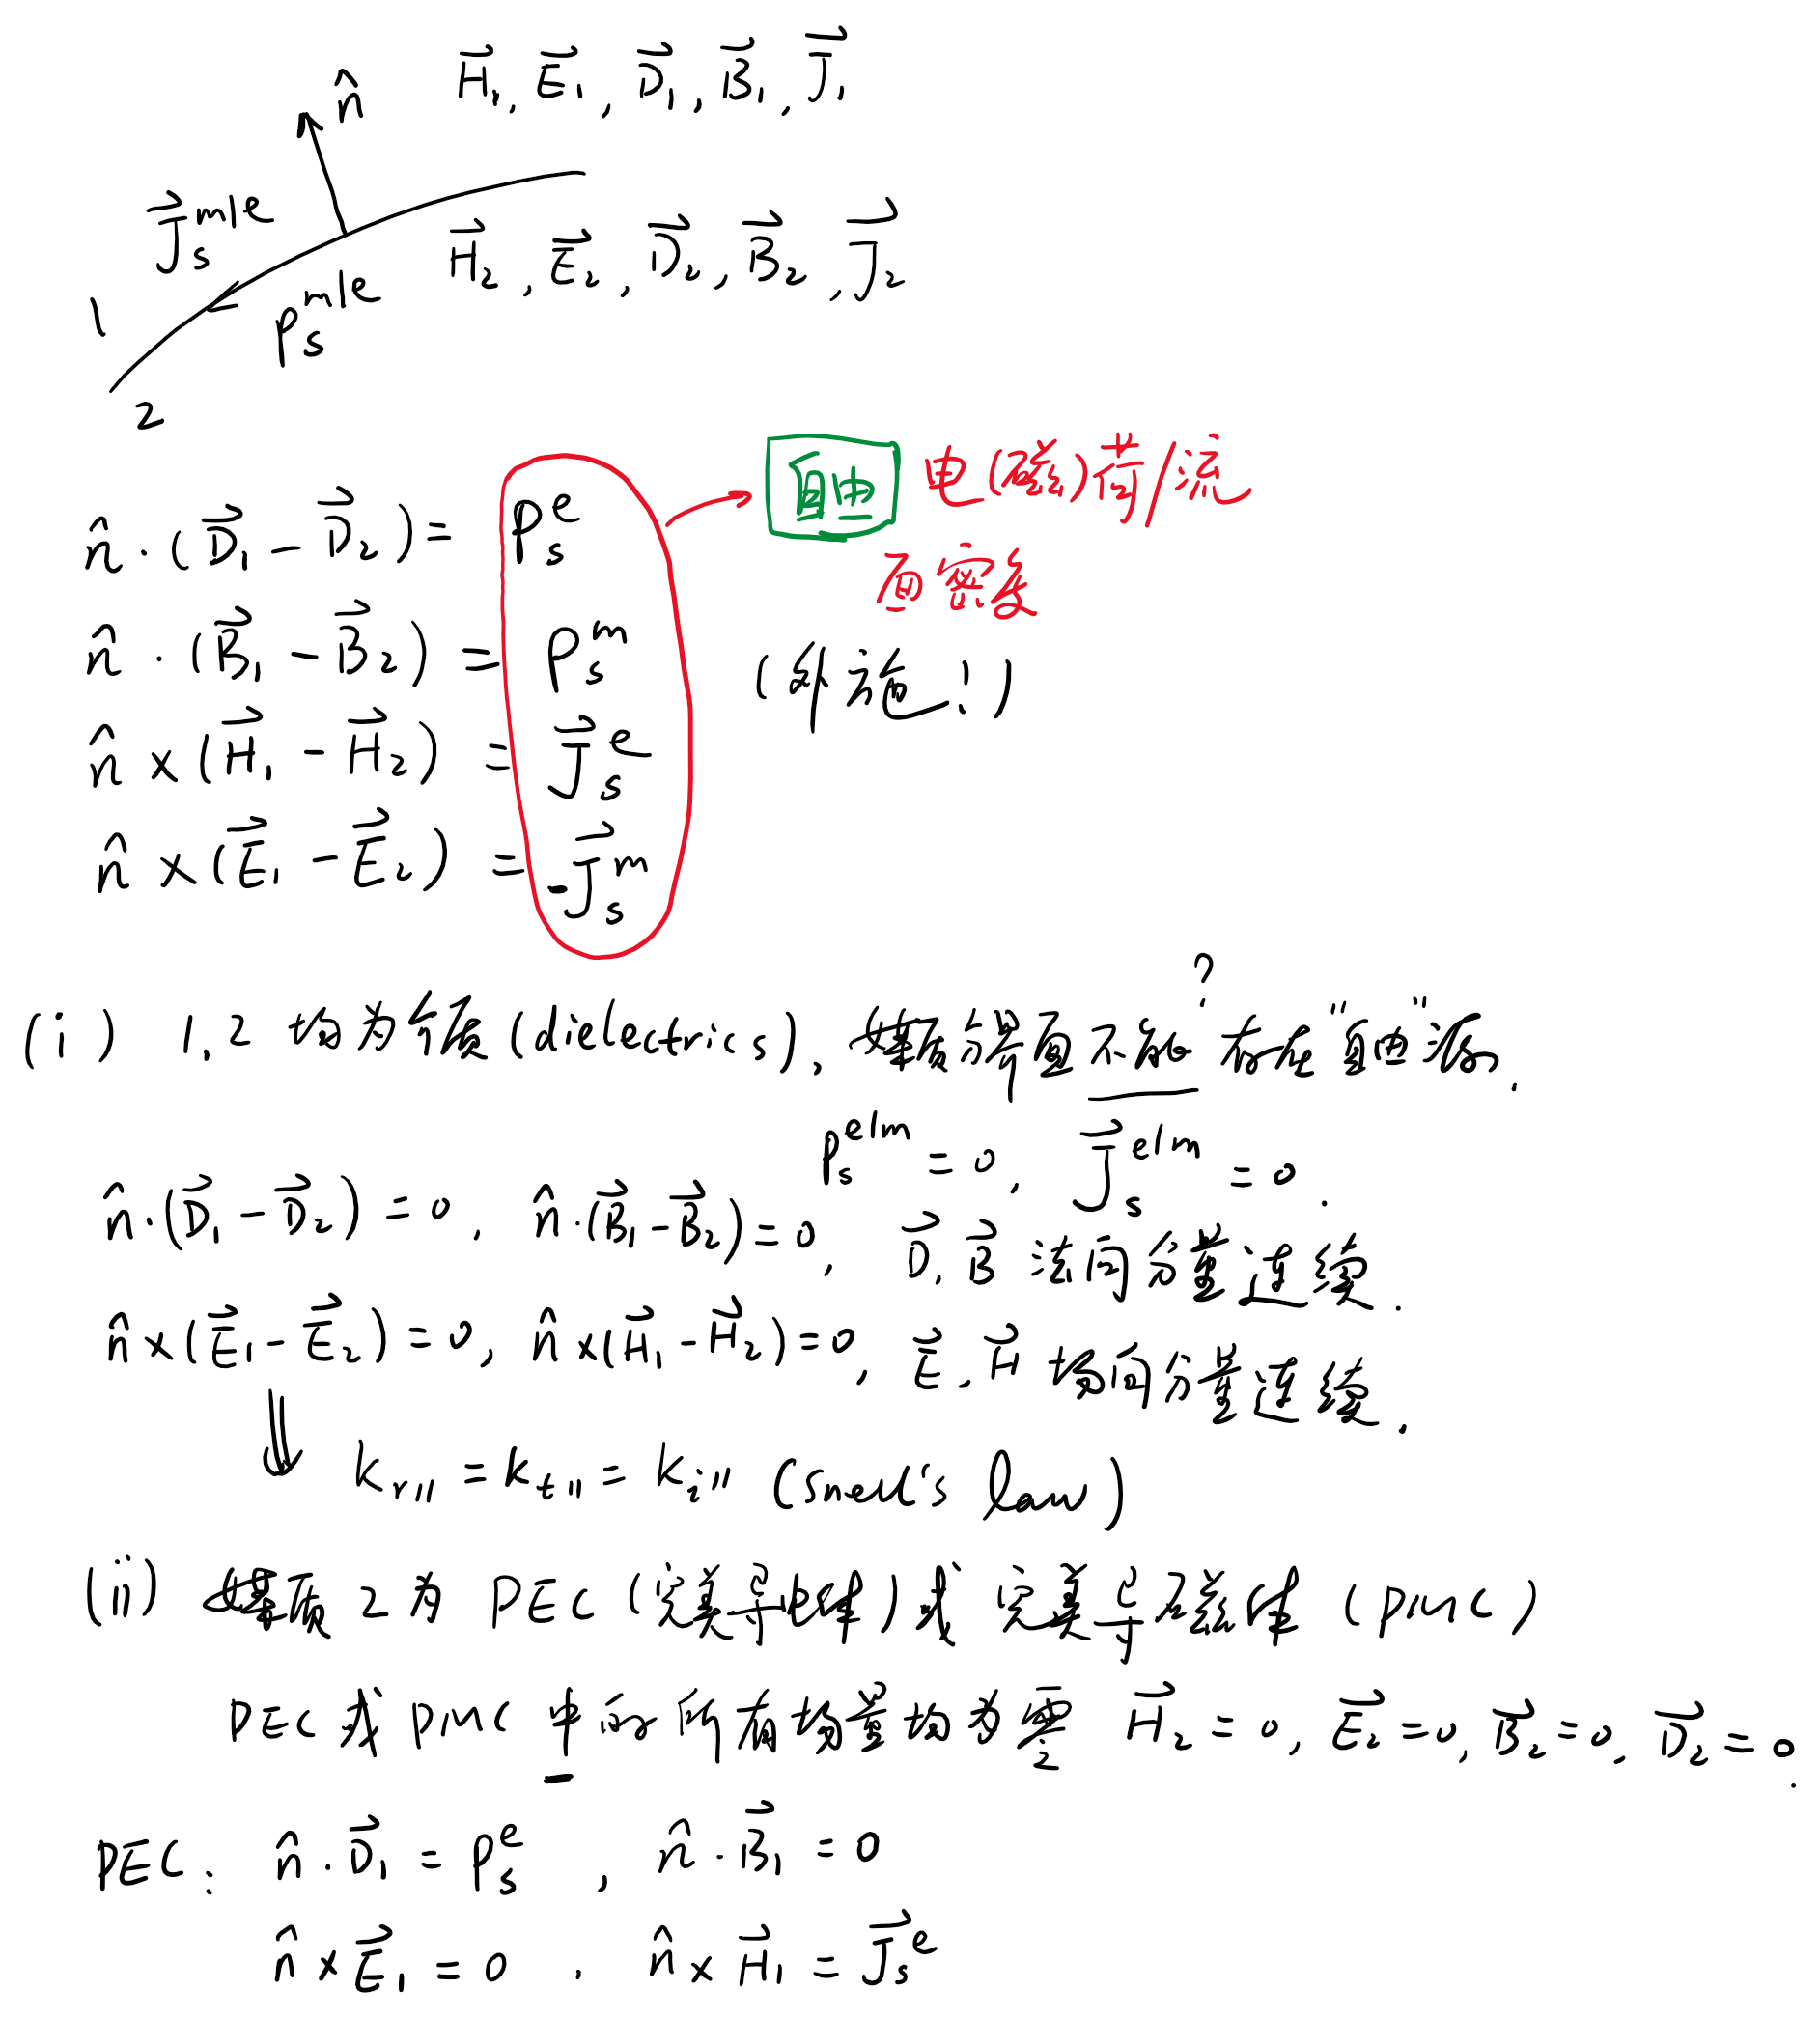 n̂ H⃗₁, E⃗₁, D⃗₁, B⃗₁, J⃗₁
J⃗ₛᵐ|ᵉ H⃗₂, E⃗₂, D⃗₂, B⃗₂, J⃗₂
1 ρₛᵐ|ᵉ
2
n̂·(D⃗₁ - D⃗₂) = ρₛᵉ 自由 电(磁)荷/流
面密度
n̂·(B⃗₁ - B⃗₂) = ρₛᵐ (外施!)
n̂×(H⃗₁ - H⃗₂) = J⃗ₛᵉ
n̂×(E⃗₁ - E⃗₂) = -J⃗ₛᵐ
?
(i) 1,2 均为介质(dielectrics), 媒质分界面不能存在"自由"源.
ρₛᵉ|ᵐ = 0, J⃗ₛᵉ|ᵐ = 0.
n̂·(D⃗₁ - D⃗₂) = 0, n̂·(B⃗₁ - B⃗₂) = 0, D⃗, B⃗ 法向分量连续.
n̂×(E⃗₁ - E⃗₂) = 0, n̂×(H⃗₁ - H⃗₂) = 0, E⃗, H⃗ 场向分量连续.
⇓ kᵣ∥ = kₜ∥ = kᵢ∥ (snell's law)
(ii) 媒质2为 PEC (完美导电体) 或 完美导磁体 (PMC)
PEC或PMC中的所有场量均为零 H⃗₂ = 0, E⃗₂ = 0, B⃗₂ = 0, D⃗₂ = 0.
PEC: n̂·D⃗₁ = ρₛᵉ, n̂·B⃗₁ = 0
n̂×E⃗₁ = 0, n̂×H⃗₁ = J⃗ₛᵉ